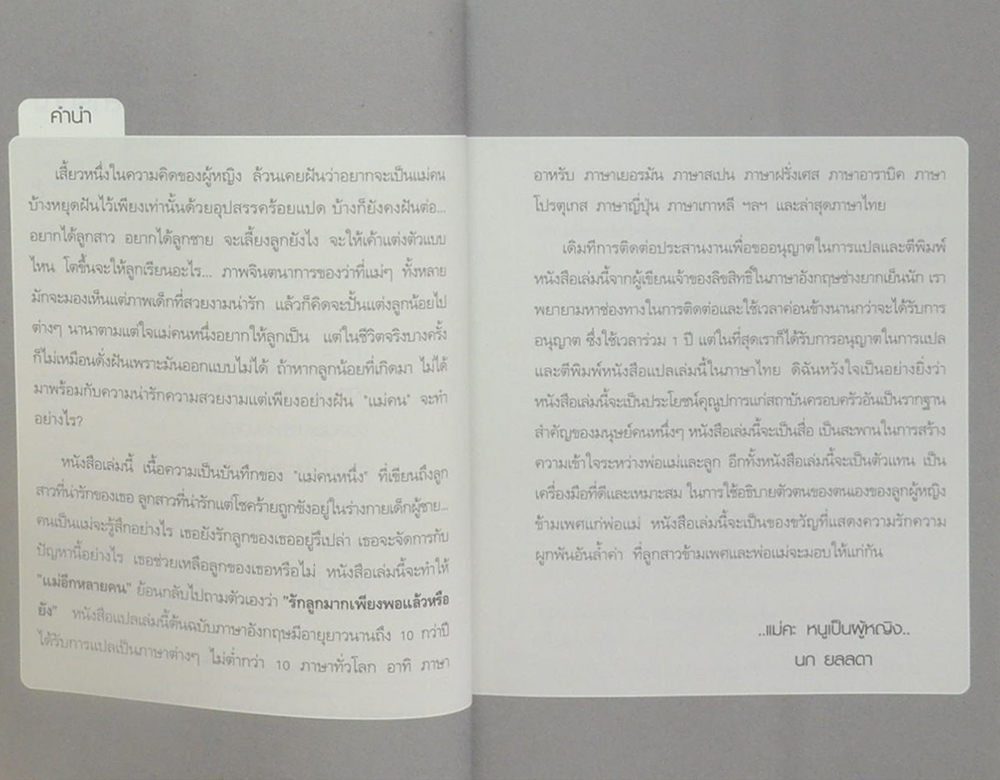 คำนำ
เสี้ยวหนึ่งในความคิดของผู้หญิง ล้วนเคยฝันว่าอยากจะเป็นแม่คน
บ้างหยุดฝันไว้เพียงเท่านั้นด้วยอุปสรรคร้อยแปด บ้างก็ยังคงฝันต่อ...
อยากได้ลูกสาว อยากได้ลูกชาย จะเลี้ยงลูกยังไง จะให้เค้าแต่งตัวแบบ
ไหน โตขึ้นจะให้ลูกเรียนอะไร... ภาพจินตนาการของว่าที่แม่ๆ ทั้งหลาย
มักจะมองเห็นแต่ภาพเด็กที่สวยงามน่ารัก แล้วก็คิดจะปั้นแต่งลูกน้อยไป
ต่างๆ นานาตามแต่ใจแม่คนหนึ่งอยากให้ลูกเป็น แต่ในชีวิตจริงบางครั้ง
ก็ไม่เหมือนดั่งฝันเพราะมันออกแบบไม่ได้ ถ้าหากลูกน้อยที่เกิดมา ไม่ได้
มาพร้อมกับความน่ารักความสวยงามแต่เพียงอย่างฝัน "แม่คน" จะทำ
อย่างไร?
หนังสือเล่มนี้ เนื้อความเป็นบันทึกของ "แม่คนหนึ่ง" ที่เขียนถึงลูก
สาวที่น่ารักของเธอ ลูกสาวที่น่ารักแต่โชคร้ายถูกขังอยู่ในร่างกายเด็กผู้ชาย...
คนเป็นแม่จะรู้สึกอย่างไร เธอยังรักลูกของเธออยู่รึเปล่า เธอจะจัดการกับ
ปัญหานี้อย่างไร เธอช่วยเหลือลูกของเธอหรือไม่ หนังสือเล่มนี้จะทำให้
"แม่อีกหลายคน" ย้อนกลับไปถามตัวเองว่า "รักลูกมากเพียงพอแล้วหรือ
ยัง" หนังสือแปลเล่มนี้ต้นฉบับภาษาอังกฤษมีอายุยาวนานถึง 10 กว่าปี
ได้รับการแปลเป็นภาษาต่างๆ ไม่ต่ำกว่า 10 ภาษาทั่วโลก อาทิ ภาษา
อาหรับ ภาษาเยอรมัน ภาษาสเปน ภาษาฝรั่งเศส ภาษาอาราบิค ภาษา
โปรตุเกส ภาษาญี่ปุ่น ภาษาเกาหลี ฯลฯ และล่าสุดภาษาไทย
เดิมทีการติดต่อประสานงานเพื่อขออนุญาตในการแปลและตีพิมพ์
หนังสือเล่มนี้จากผู้เขียนเจ้าของลิขสิทธิ์ในภาษาอังกฤษช่างยากเย็นนัก เรา
พยายามหาช่องทางในการติดต่อและใช้เวลาค่อนข้างนานกว่าจะได้รับการ
อนุญาต ซึ่งใช้เวลาร่วม 1 ปี แต่ในที่สุดเราก็ได้รับการอนุญาตในการแปล
และตีพิมพ์หนังสือแปลเล่มนี้ในภาษาไทย ดิฉันหวังใจเป็นอย่างยิ่งว่า
หนังสือเล่มนี้จะเป็นประโยชน์คุณูปการแก่สถาบันครอบครัวอันเป็นรากฐาน
สำคัญของมนุษย์คนหนึ่งๆ หนังสือเล่มนี้จะเป็นสื่อ เป็นสะพานในการสร้าง
ความเข้าใจระหว่างพ่อแม่และลูก อีกทั้งหนังสือเล่มนี้จะเป็นตัวแทน เป็น
เครื่องมือที่ดีและเหมาะสม ในการใช้อธิบายตัวตนของตนเองของลูกผู้หญิง
ข้ามเพศแก่พ่อแม่ หนังสือเล่มนี้จะเป็นของขวัญที่แสดงความรักความ
ผูกพันอันล้ำค่า ที่ลูกสาวข้ามเพศและพ่อแม่จะมอบให้แก่กัน
..แม่คะ หนูเป็นผู้หญิง..
นก ยลลดา